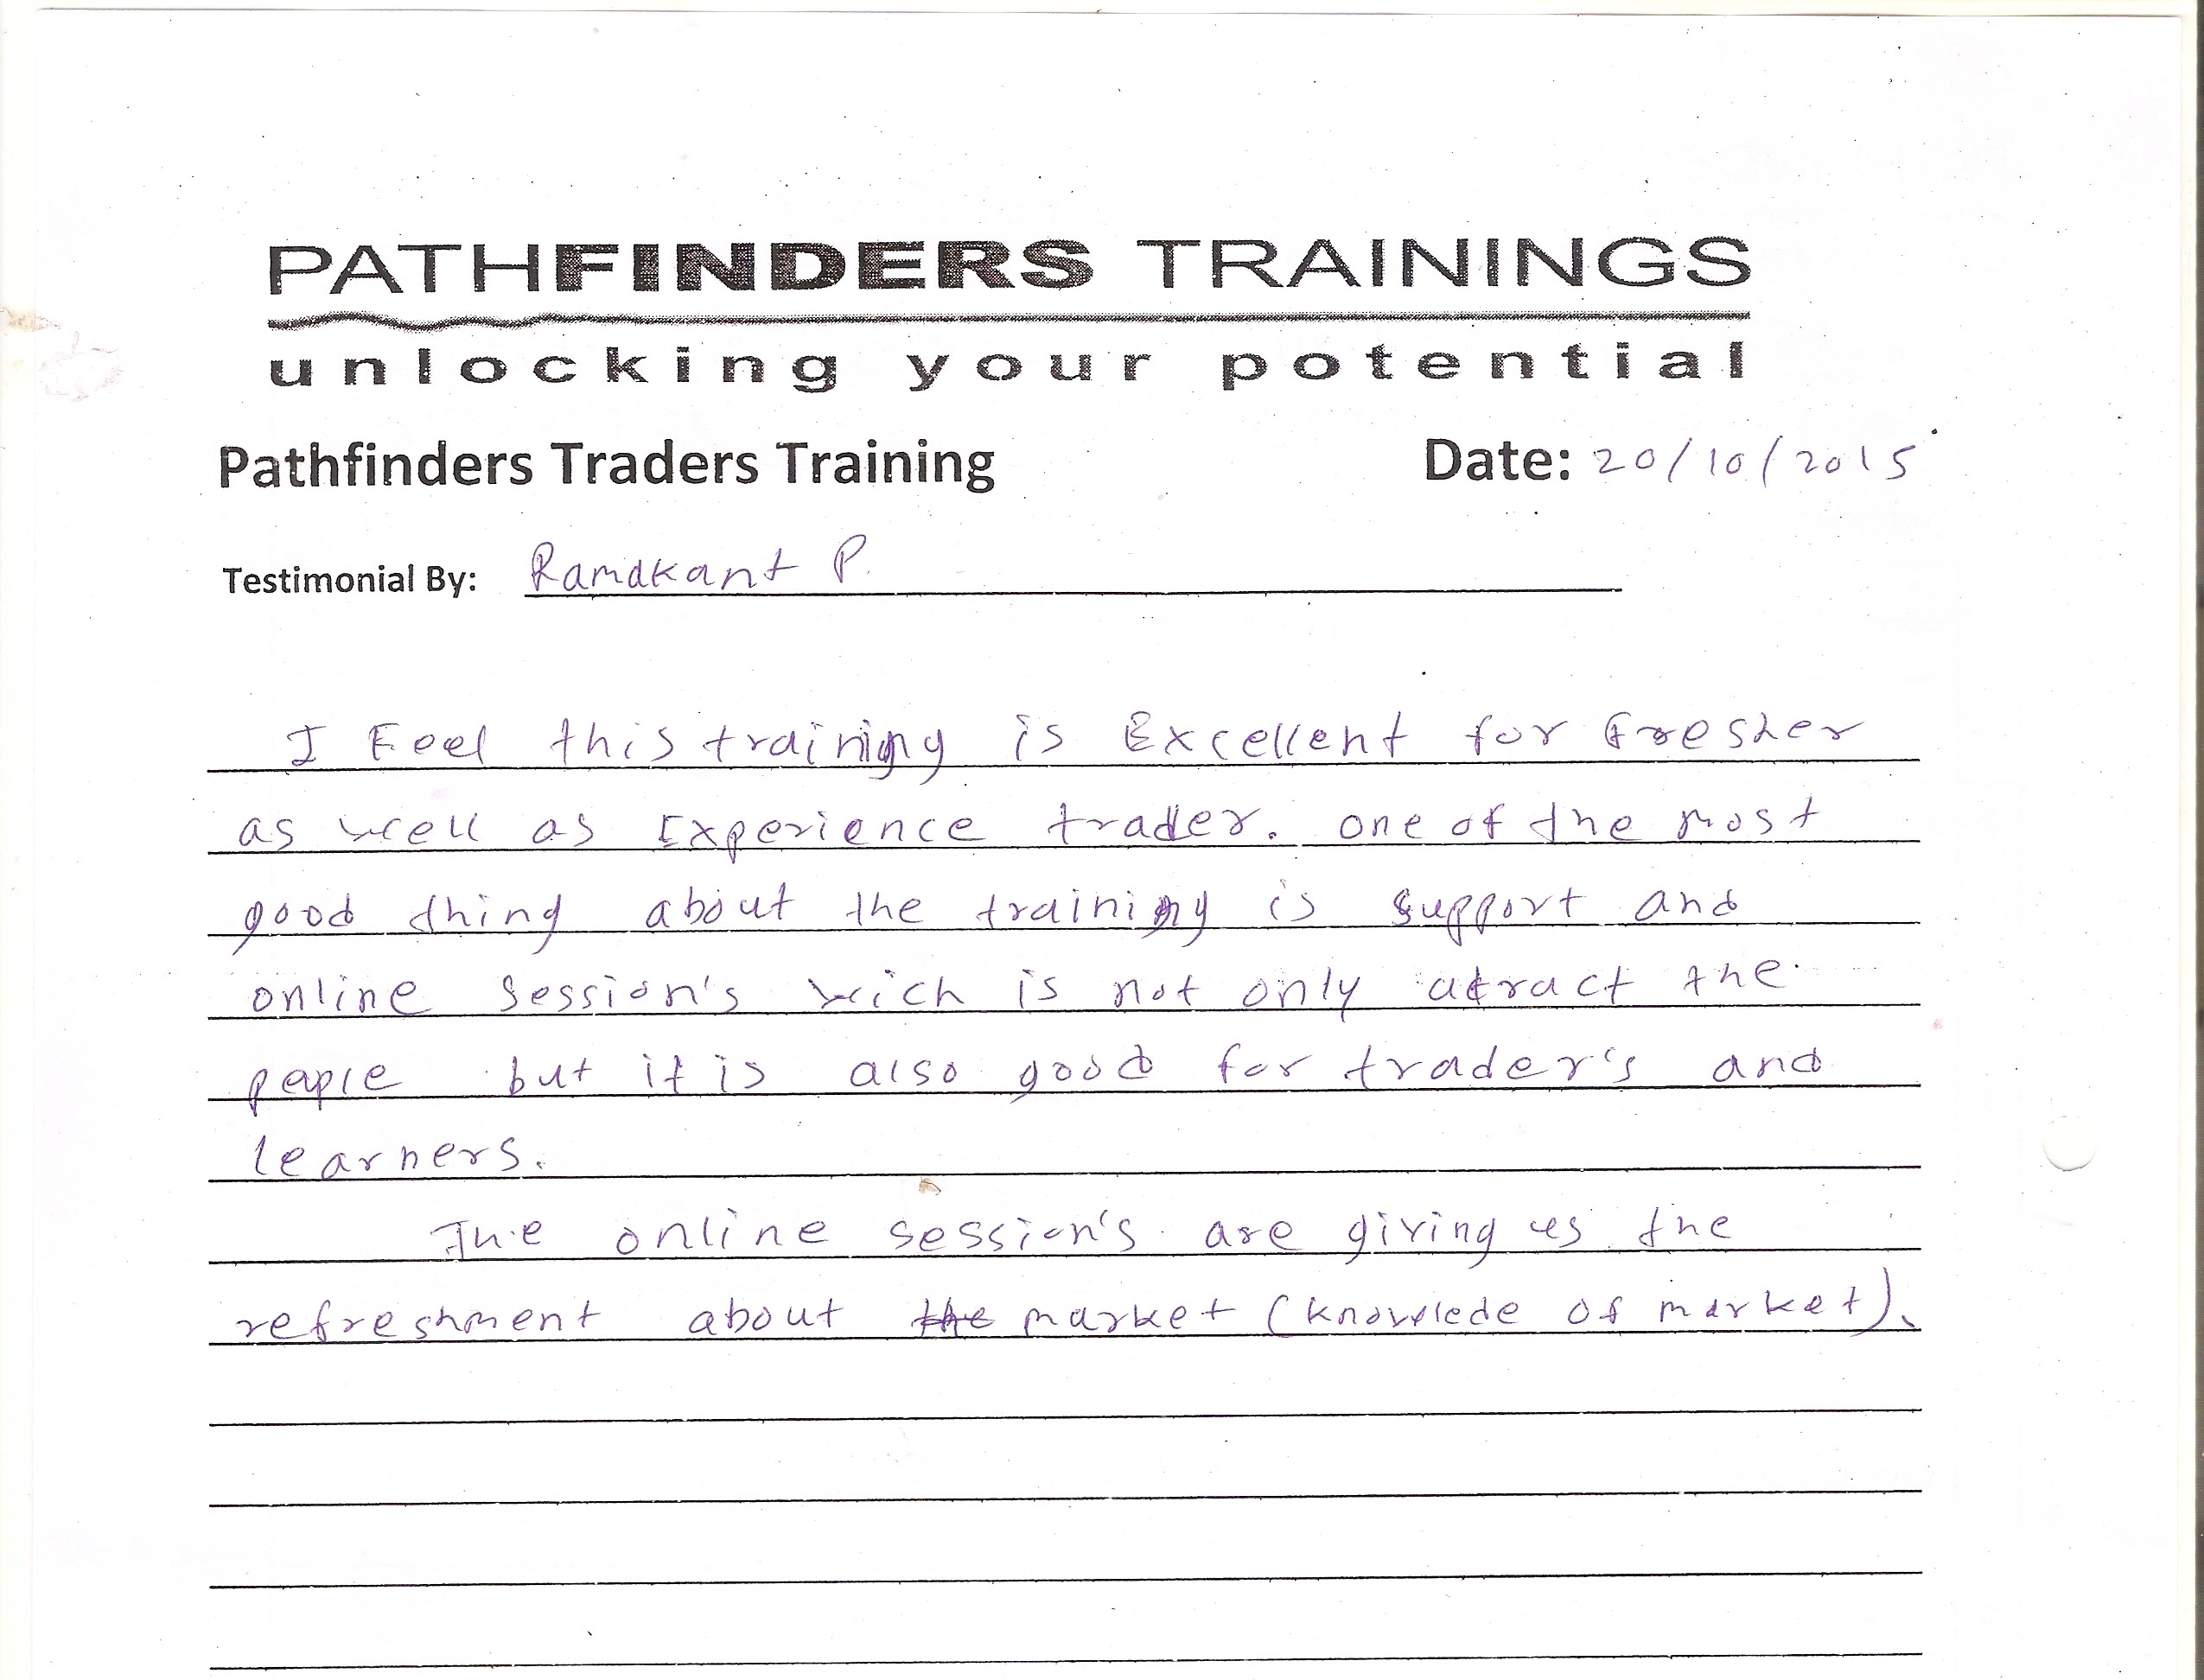 PATHFINDERS TRAININGS
unlocking your potential
Pathfinders Traders Training Date: 20/10/2015
Testimonial By: Ramakant P.
I Feel this training is Excellent for Fresher
as well as Experience trader. one of the most
good thing about the training is support and
online session's wich is not only atract the
peaple but it is also good for trader's and
learners.
The online session's are giving us the
refreshment about the market (knowlede of market).